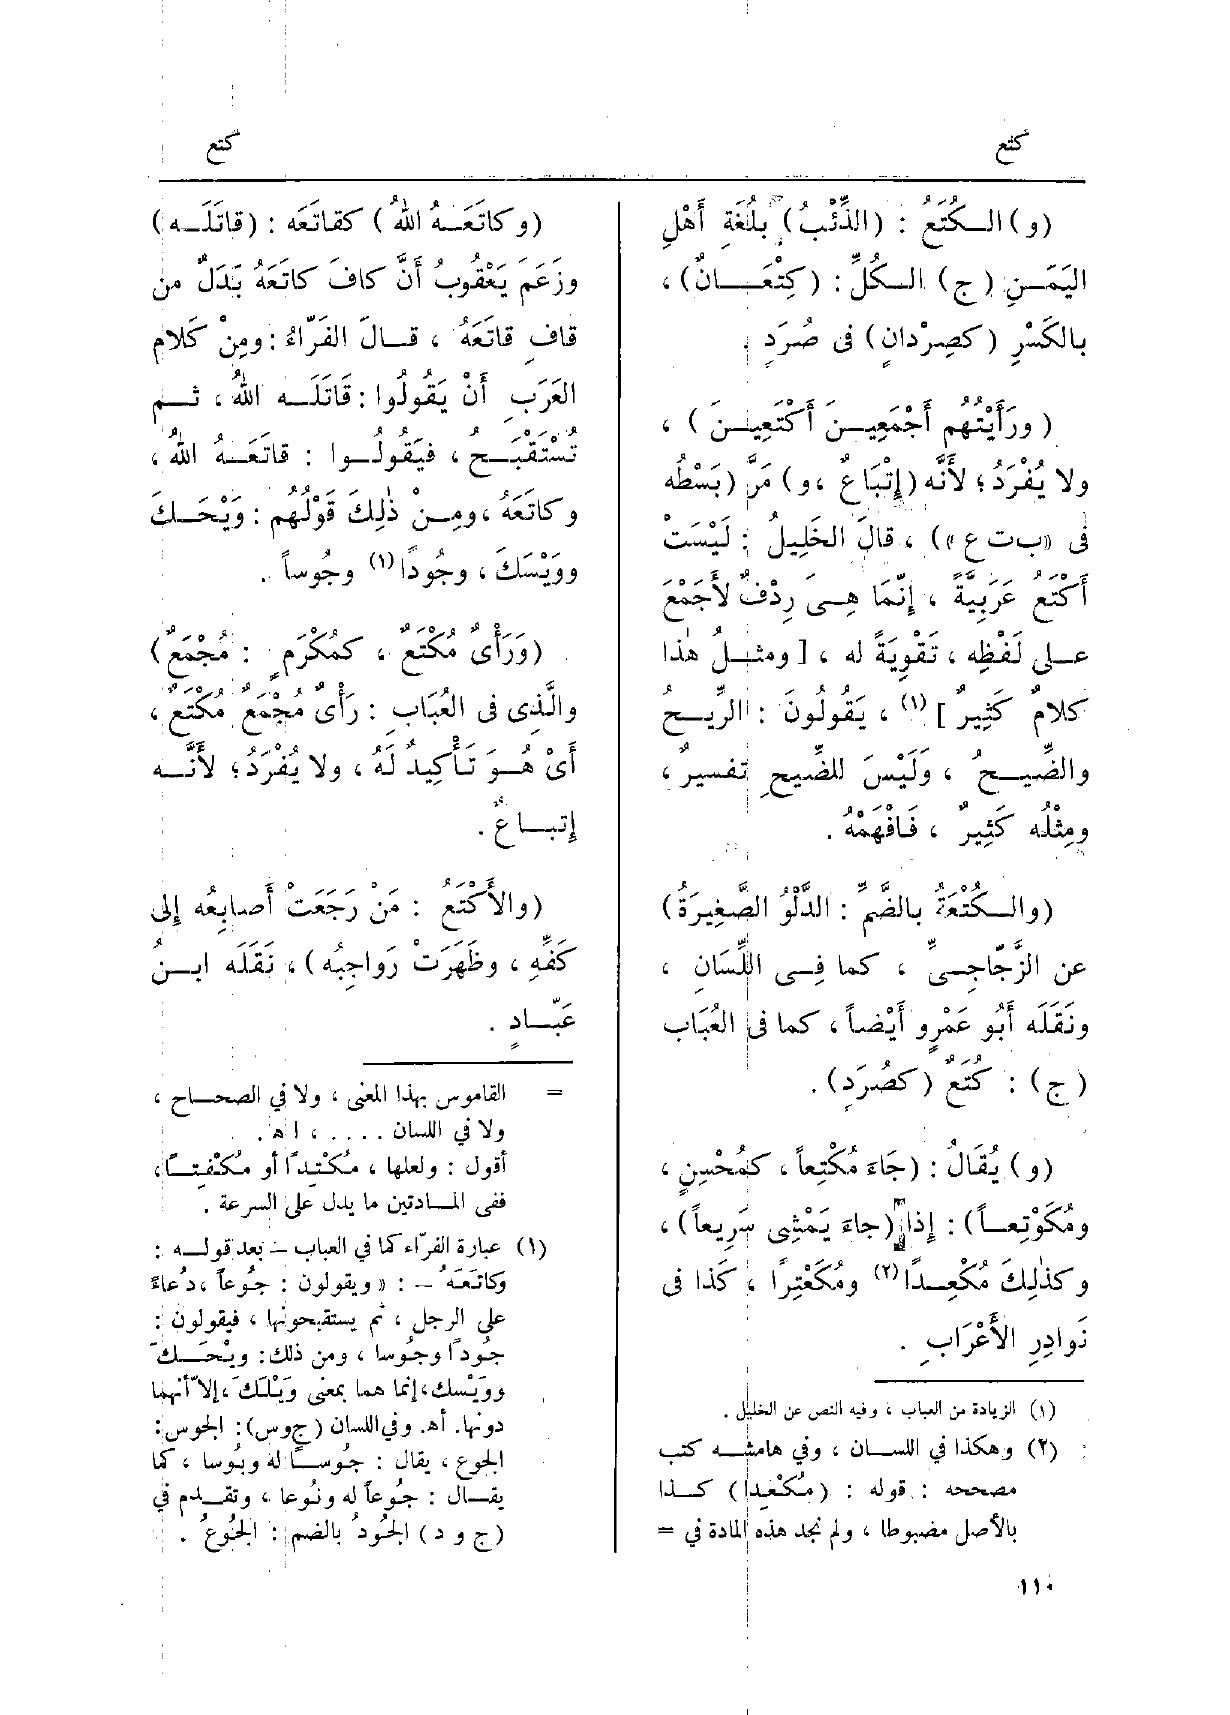 كتع
كتع
(و) الـكُتَعُ : (الذِّئْبُ) بِلُغَةِ أَهْلِ
اليَمَـنِ (ج) الـكُلِّ : (كِتْعَـــانٌ) ،
بالكَسْرِ (كصِرْدانٍ) فى صُرَدٍ .
( ورَأَيْتُهم أَجْمَعِيـنَ أَكْتَعِيـنَ ) ،
ولا يُفْرَدُ ؛ لأَنَّه (إِتْبَاعٌ ، و) مَرَّ (بَسْطُه
فى «ب ت ع ») ، قالَ الخَلِيلُ : لَيْسَتْ
أَكْتَع عَرَبِيَّةً ، إِنَّمَا هِـىَ رِدْفٌ لأَجْمَعَ
عـلى لَفْظِه ، تَقْوِيَةً له ، [ ومثـلُ هٰذا
كلامٌ كَثِيرٌ ] (١) ، يَقُولُونَ : الرِّيـحُ
والضِّيــحُ ، وَلَيْسَ للضِّيحِ تفسيرٌ ،
ومِثْلُه كَثِيرٌ ، فَافْهَمْهُ .
(والـكُتْعَةُ بالضَّمِّ : الدَّلْوُ الصَّغِيرَةُ)
عن الزَّجّاجـىِّ ، كما فِـى اللِّسَانِ ،
ونَقَلَه أَبُو عَمْرٍو أَيْضاً ، كما فى العُبَاب
( ج ) : كُتَعٌ (كصُرَدٍ) .
(و) يُقَالُ : (جَاءَ مُكْتِعاً ، كمُحْسِنٍ ،
ومُكَوْتِعــاً) : إِذا (جاءَ يَمْشِى سَرِيعاً) ،
وكذٰلِكَ مُكْعِـدًا (٢) ومُكَعْتِرًا ، كَذا فى
نَوادِرِ الأَعْرَابِ .
(١) الزيادة من العباب ، وفيه النص عن الخليل .
(٢) وهكذا في اللسـان ، وفي هامشـه كتب
مصححه : قوله : (مُكْعِدا) كـذا
بالأصل مضبوطا ، ولم نجد هذه المادة في =
(وكاتَعَـهُ اللهُ ) كقاتَعَه : (قاتَلَـه)
وزَعَمَ يَعْقُوبُ أَنَّ كافَ كاتَعَهُ بَدَلٌ من
قافِ قاتَعَهُ ، قـالَ الفَرّاءُ : ومِنْ كَلام
العَرَبِ أَنْ يَقُولُوا : قَاتَلَـه اللهُ ، ثـم
تُسْتَقْبَـح ، فيَقُولُـوا : قاتَعَـهُ اللهُ ،
وكاتَعَهُ ، ومِـنْ ذٰلِكَ قَوْلُهم : وَيْحَـكَ
ووَيْسَكَ ، وجُودًا (١) وجُوساً .
(وَرَأْىٌ مُكْتَعٌ ، كمُكْرَمٍ : مُجْمَعٌ)
والَّذِى فى العُبَابِ : رَأْىٌ مُجْمَعٌ مُكْتَعٌ ،
أَىْ هُـوَ تَأْكِيدٌ لَهُ ، ولا يُفْرَدُ ؛ لأَنَّـه
إِتبـاعٌ .
(والأَكْتَعُ : مَنْ رَجَعَتْ أَصابِعُه إِلى
كَفِّهِ ، وظَهَرَتْ رَواجِبُه ) ، نَقَلَه ابـنُ
عَبّـادٍ .
= القاموس بهذا المعنى ، ولا في الصحـاح ،
ولا في اللسان . . . . ، ا ه .
أقول : ولعلها ، مُكْتِدًا أو مُكْفِتًـا ،
ففى المـادتين ما يدل على السرعة .
(١) عبارة الفرّاء كما في العباب – بعد قولـه :
وكاتَعَهُ – : « ويقولون : جُوعاً ، دُعاءً
على الرجل ، ثم يستقبحونها ، فيقولون :
جُوداً وجُوسا ، ومن ذلك : ويْحَـكَ
ووَيْسك ، إنما هما بمعنى وَيْلَكَ ، إلاّ أنهما
دونها. أه. وفي اللسان (ج و س) : الجوس :
الجوع ، يقال : جُوسـاً له وبُوسا ، كما
يقـال : جُوعاً له ونُوعا ، وتقـدم في
(ج و د) الجُودُ بالضم : الجُوعُ .
١١٠